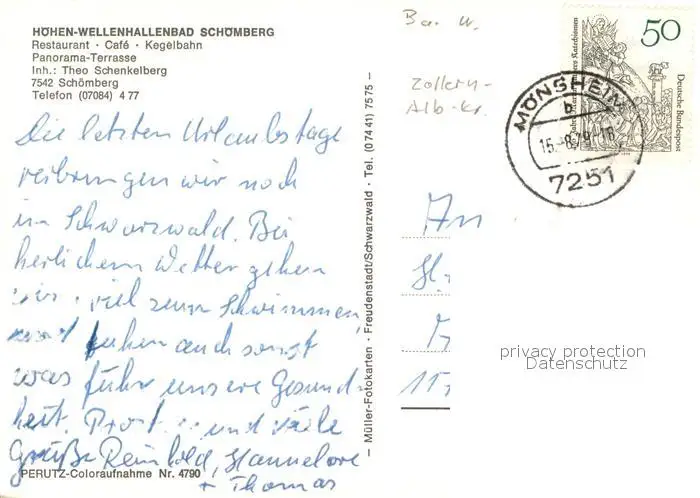 HÖHEN-WELLENHALLENBAD SCHÖMBERG
Restaurant · Café · Kegelbahn
Panorama-Terrasse
Inh.: Theo Schenkelberg
7542 Schömberg
Telefon (07084) 4 77
Die letzten Urlaubstage
verbringen wir noch
im Schwarzwald. Bei
herlichem Wetter gehen
wir viel zum Schwimmen,
und tuhen auch sonst
was führ unsere Gesund-
heit. Prost und viele
Grüße Reinhold, Hannelore
+ Thomas
PERUTZ-Coloraufnahme Nr. 4790
— Müller-Fotokarten · Freudenstadt/Schwarzwald · Tel. (0 74 41) 75 75 —
Bad. W.
Zollern-
Alb-Kr.
50
Deutsche Bundespost
MÖNSHEIM
b
15.-8.79-18
7251
An
privacy protection
Datenschutz